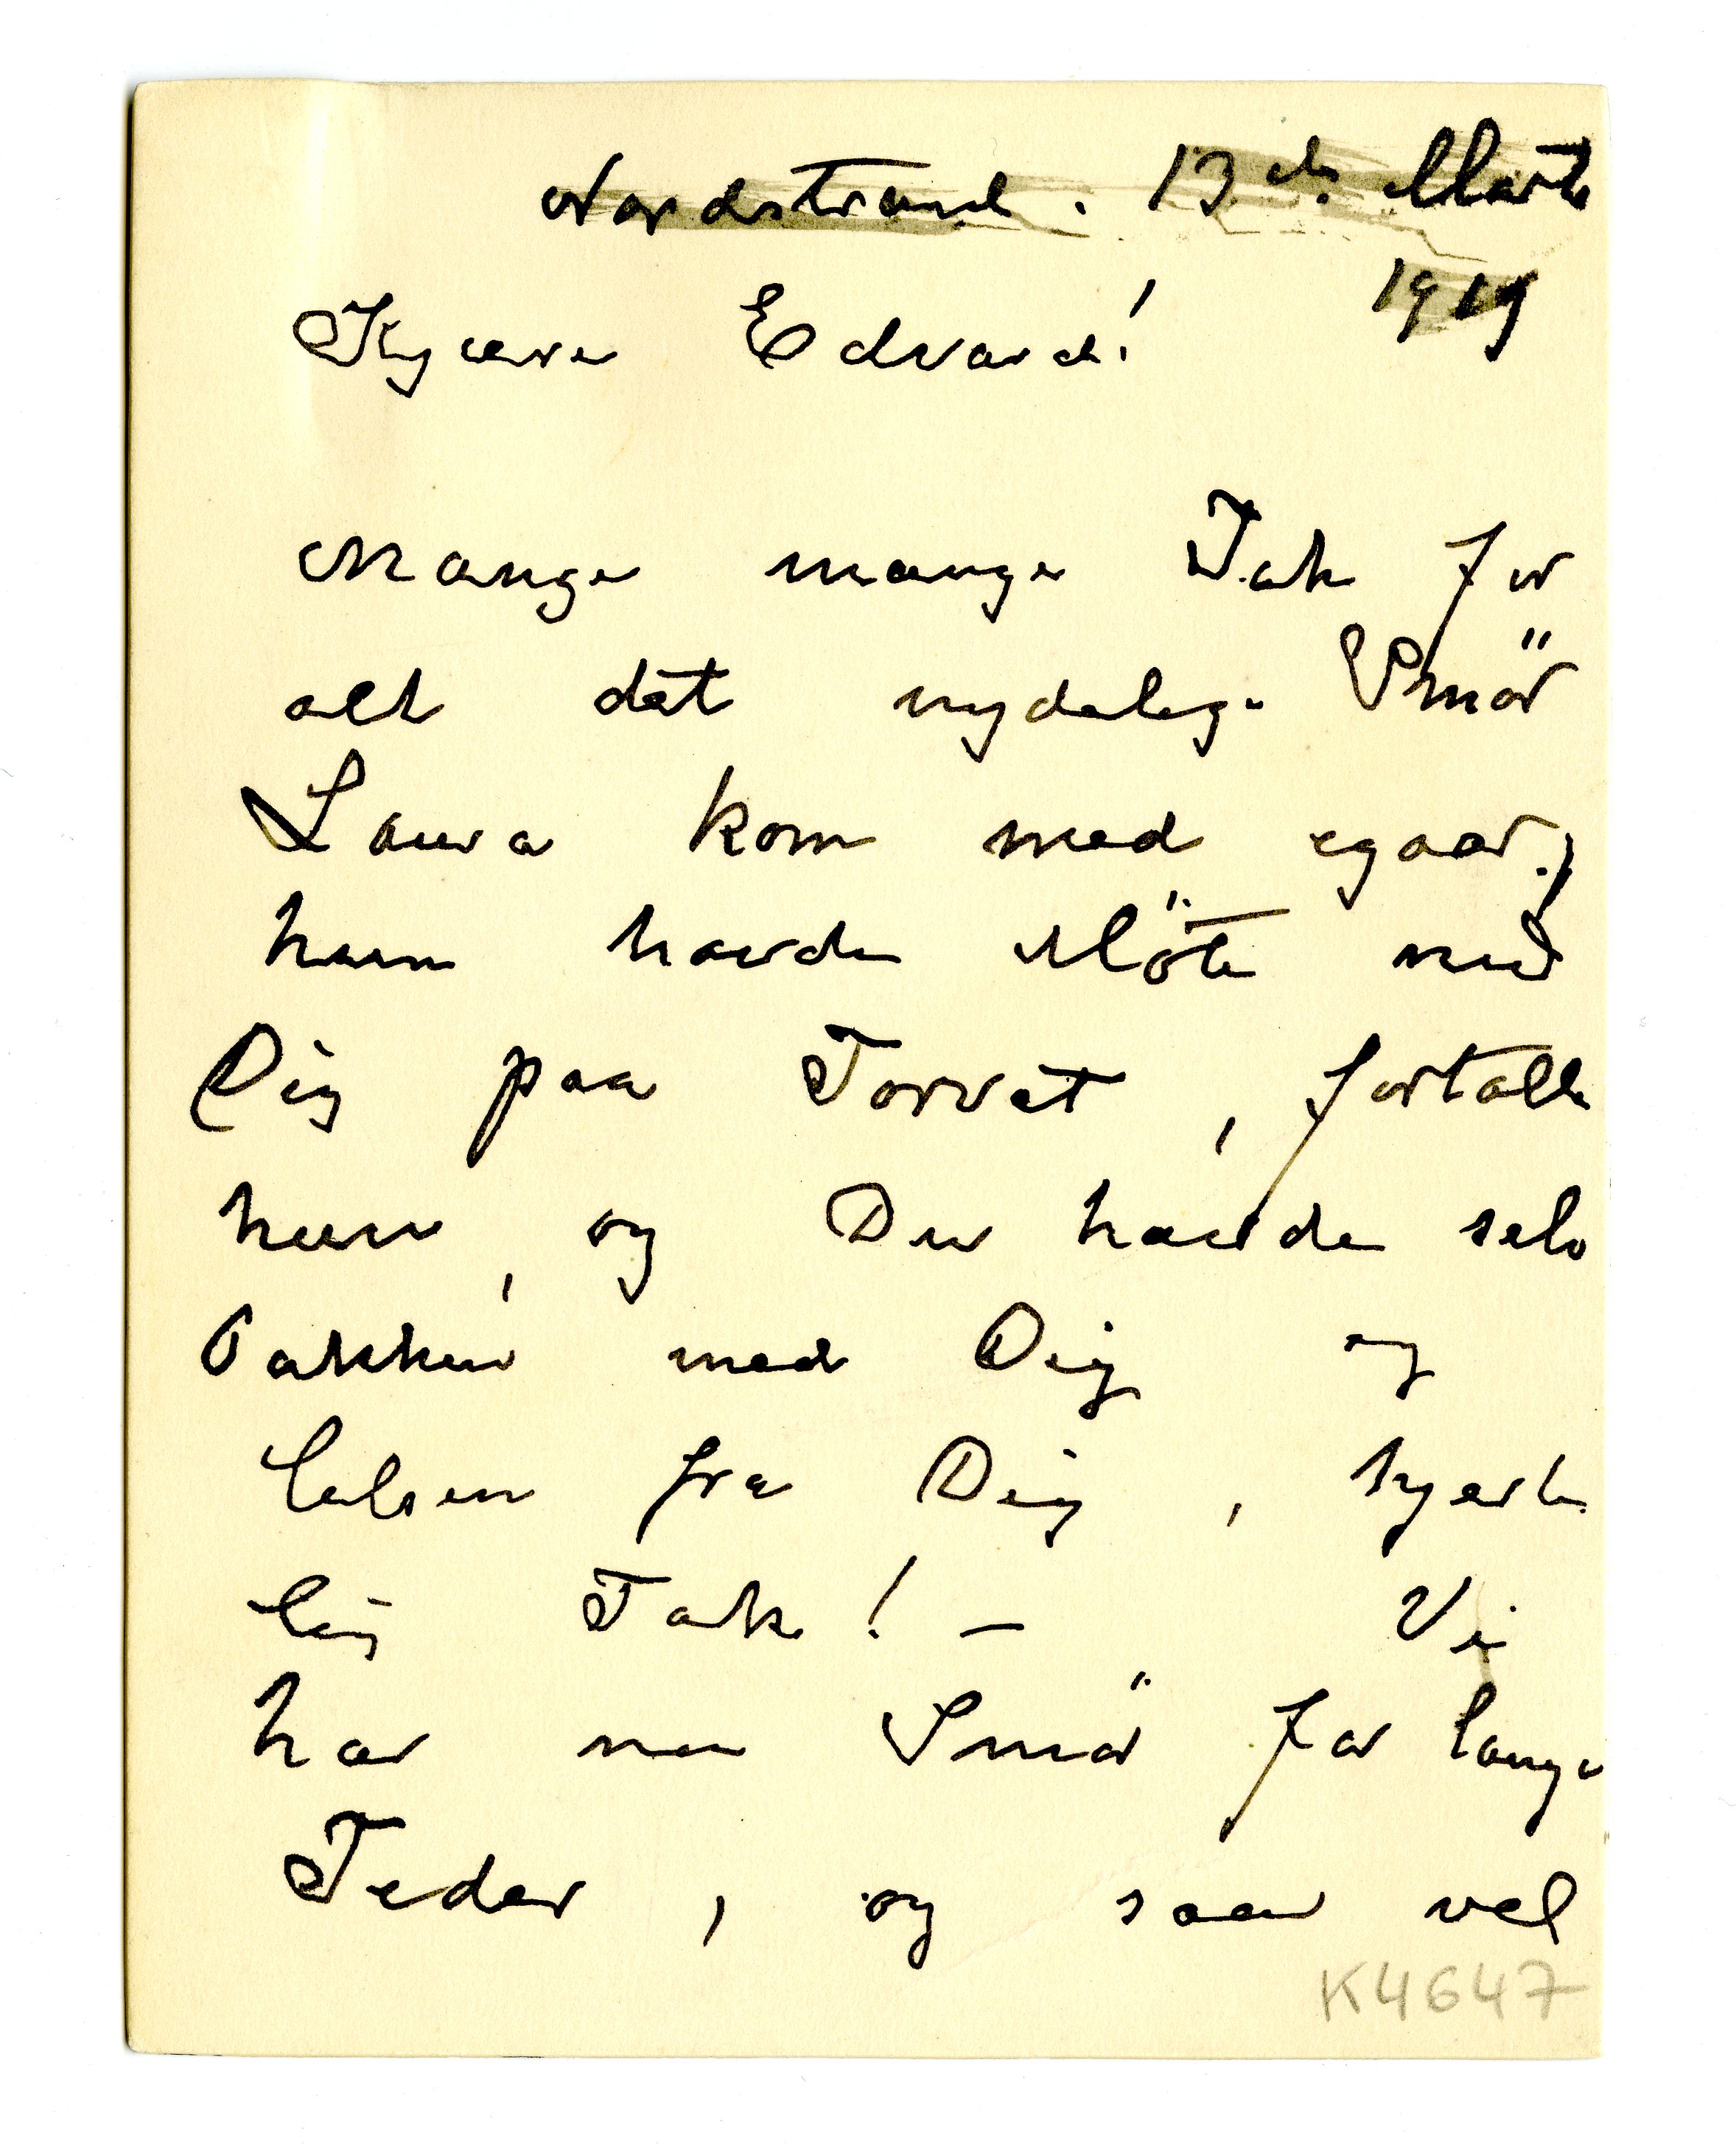 Nordstrand. 13de Marts
1919
Kjære Edvard!
Mange mange Tak for
alt det nydelige Smör
Laura kom med igaar.,
hun havde Möte med
Dig paa Torvet, fortalte
hun, og Du havde selv
Pakken med Dig og
talsen fra Dig, hjerte
lig Tak! —  Vi
har nu Smör for lange
Tider, og saa vel
K4647